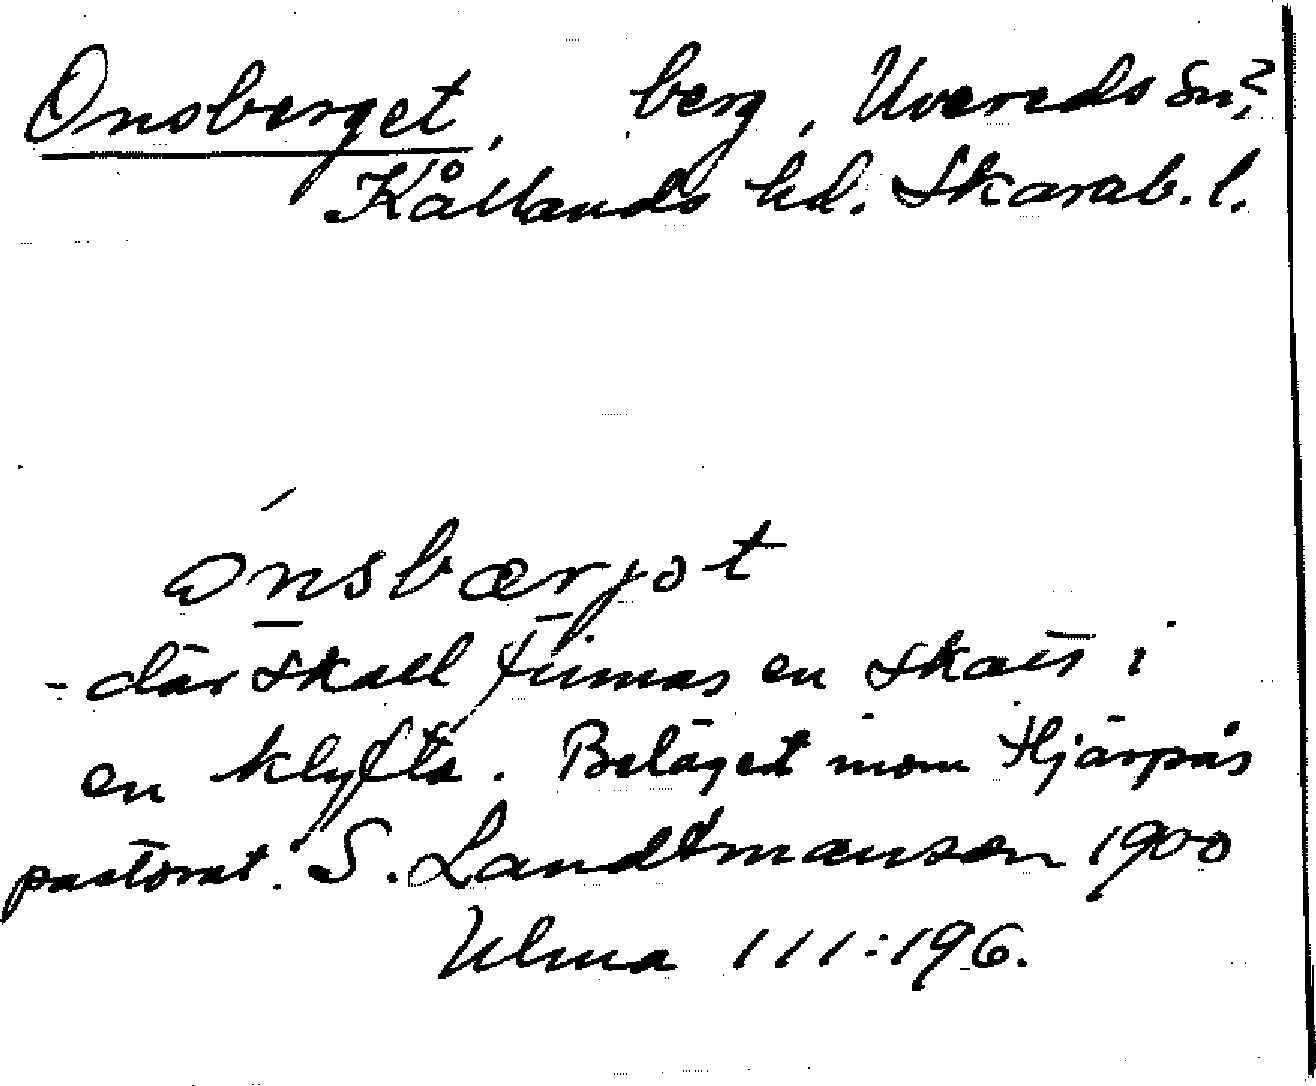 Onsberget, berg, Uvereds sn?
Kållands hd. Skarab. l.
ónsbærjot
- där skall finnas en skatt i
en klyfta. Beläget inom Hjärpås
pastorat. S. Landtmanson 1900
Ulma 111:196.